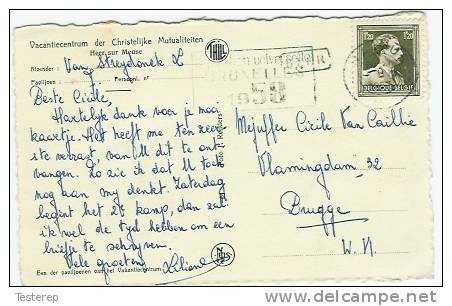 Vacantiecentrum der Christelijke Mutualiteiten
Heer sur Meuse
Afzender : Van Streydonck L
Paviljoen : Personnl. nr
Beste Cécile,
Hartelijk dank voor je mooi
kaartje. Het heeft me ten zeer-
ste verrast, van U dit te ont-
vangen. Zo zie ik dat U toch
nog aan mij denkt. Zaterdag
begint het 2e kamp, dan zal
ik wel de tijd hebben om een
briefje te schrijven.
Vele groeten, Liliane
Een der paviljoenen van het Vakantiecentrum
THILL
NELS
BRUXELLES
1958
1F20 1F20
BELGIQUE-BELGIË
Mejuffer Cécile Van Caillie
Vlamingdam 32
Brugge
W. Vl.
Testerep
delcampe.net